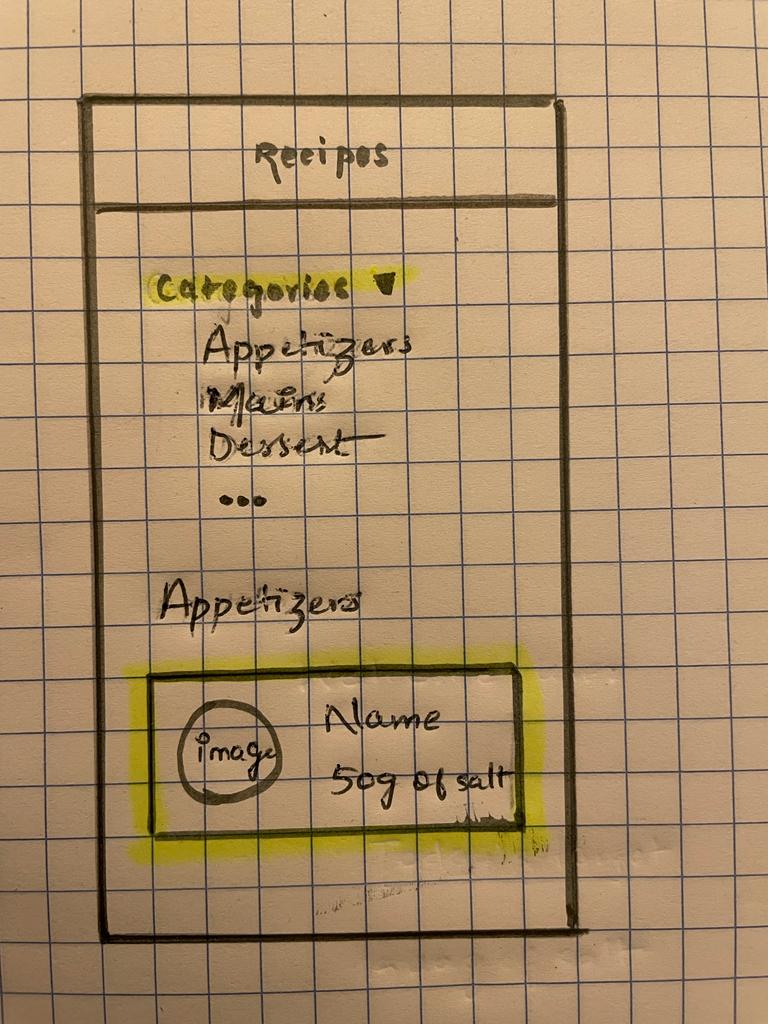 Recipes
Categories ▼
Appetizers
Mains
Dessert
•••
Appetizers
image
Name
50g of salt